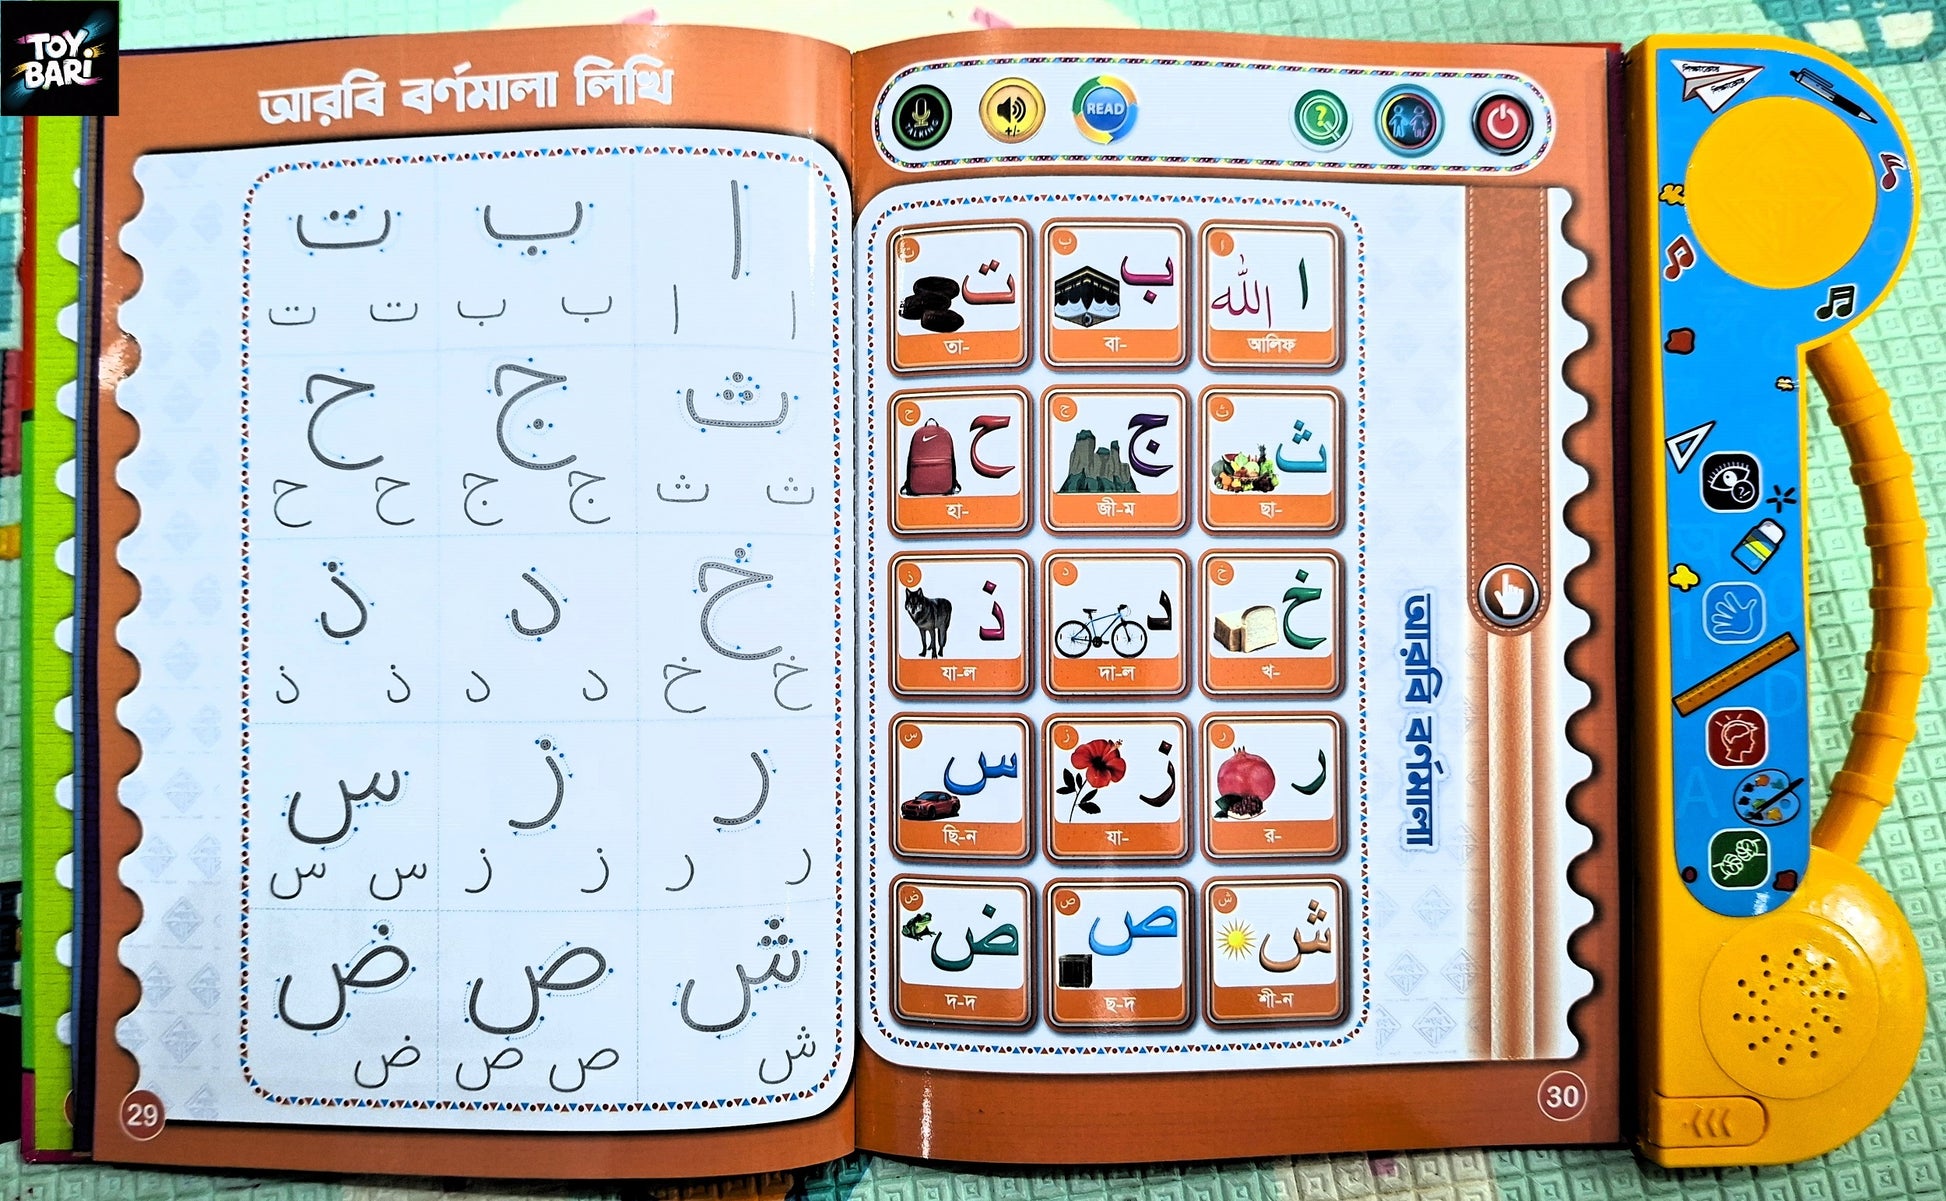 TOY
BARi
আরবি বর্ণমালা লিখি
ت ب ا
ت ت ب ب ا ا
ح ج ث
ح ح ج ج ث ث
ذ د خ
ذ ذ د د خ خ
س ز ر
س س ز ز ر ر
ض ص ش
ض ص ص ش
29
TALKING
+/-
READ
?
ت ب ا
ت ب ا الله
তা- বা- আলিফ
ح ج ث
ح ج ث
হা- জী-ম ছা-
ذ د خ
ذ د خ
যা-ল দা-ল খ-
س ز ر
س ز ر
ছি-ন যা- র-
ض ص ش
ض ص ش
দ-দ ছ-দ শী-ন
আরবি বর্ণমালা
30